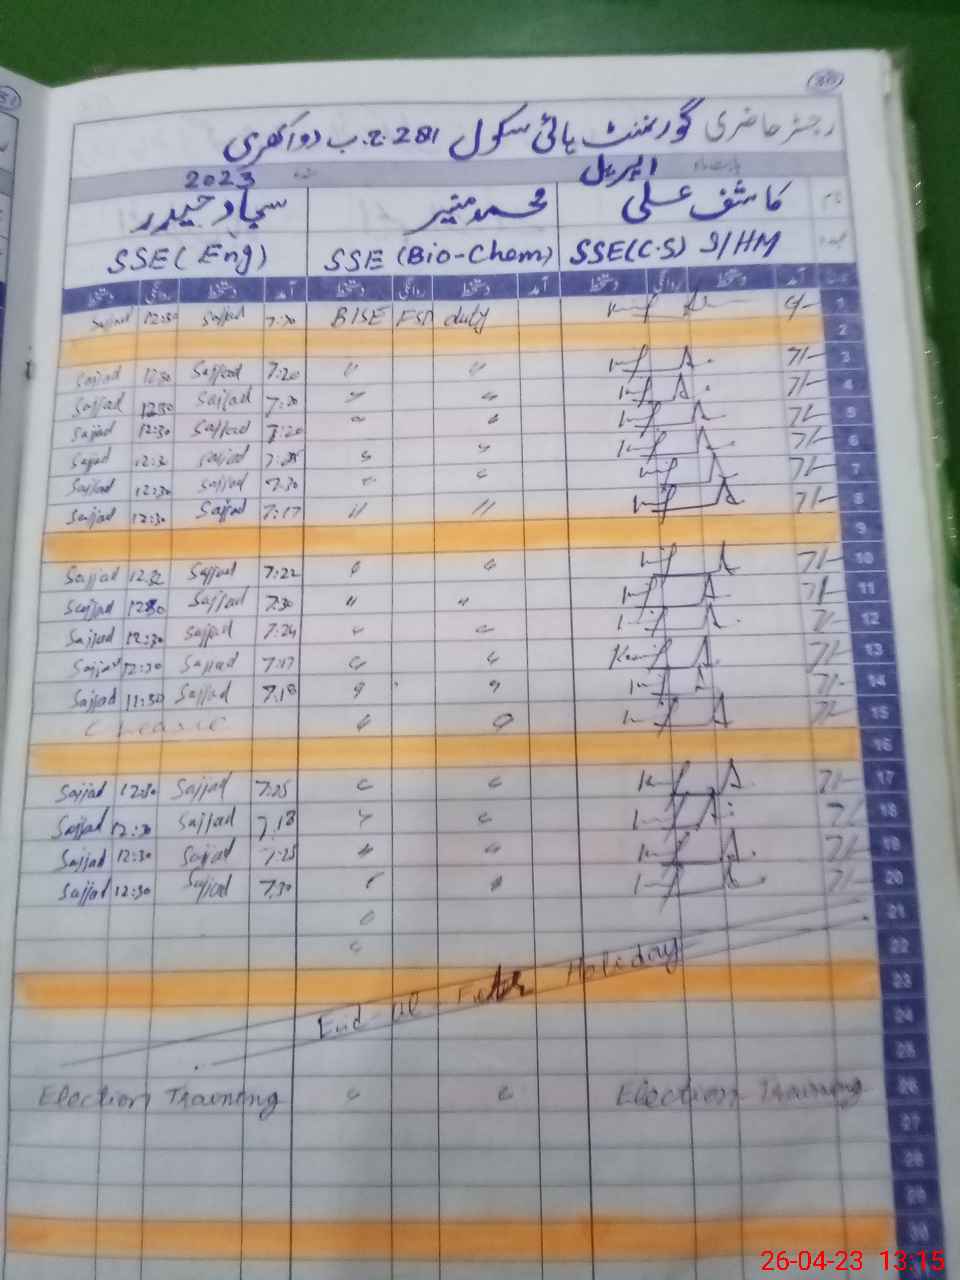 30
رجسٹر حاضری گورنمنٹ ہائی سکول 281 گ.ب دواکھری
بابت ماہ اپریل 2023
نام کاشف علی محمد منیر سجاد حیدر
عہدہ SSE(C.S) I/HM SSE (Bio-Chem) SSE (Eng)
آمد دستخط روانگی دستخط آمد دستخط روانگی دستخط آمد دستخط روانگی دستخط
1 BISE FSD duty 7:20 Sajjad 12:30 Sajjad
2
3 7/- " " 7:20 Sajjad 12:30 Sajjad
4 7/- " " 7:20 Sajjad 12:30 Sajjad
5 7/- " " 7:20 Sajjad 12:30 Sajjad
6 7/- " " Sajjad Sajjad
7 7/- " " 7:20 Sajjad 12:30 Sajjad
8 7/- " " 7:17 Sajjad 12:30 Sajjad
9
10 7/- " " 7:22 Sajjad 12:32 Sajjad
11 7/- " " 7:30 Sajjad 12:30 Sajjad
12 7/- " " 7:24 Sajjad 12:30 Sajjad
13 7/- " " 7:17 Sajjad 12:30 Sajjad
14 7/- " " 7:18 Sajjad 11:30 Sajjad
15 7/- " " C Leave
16
17 7/- " " 7:25 Sajjad 12:30 Sajjad
18 7/- " " 7:18 Sajjad 12:30 Sajjad
19 7/- " " 7:25 Sajjad 12:30 Sajjad
20 7/- " " Sajjad 12:30 Sajjad
21 "
22 "
23
Eid-ul-Feter Holiday
24
25
26 Election Training " " Election Training
27
28
29
30
26-04-23 13:15